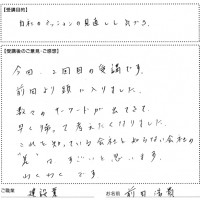 【受講目的】
自社のミッションの見直しし
【受講後のご意見・ご感想】
今回、2回目の受講です。
前回より頭に入りました。
数々のキーワードが出てきて、
早く帰って考えたくなりました。
これを知っている会社と知らない会社の
"差"はすごいと思います。
わくわくです
ご職業 建設業
お名前 前田